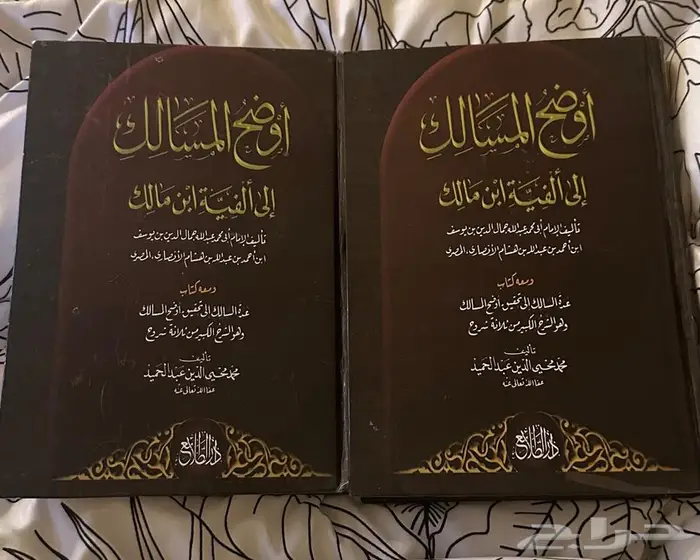 أوضح المسالك
إلى ألفية ابن مالك
تأليف الإمام أبي محمد عبد الله جمال الدين بن يوسف
ابن أحمد بن عبد الله بن هشام الأنصاري، المصري
ومعه كتاب
عدة السالك إلى تحقيق أوضح المسالك
وهو الشرح الكبير من ثلاثة شروح
تأليف
محمد محيي الدين عبد الحميد
عفا الله تعالى عنه
دار الطلائع
أوضح المسالك
إلى ألفية ابن مالك
تأليف الإمام أبي محمد عبد الله جمال الدين بن يوسف
ابن أحمد بن عبد الله بن هشام الأنصاري، المصري
ومعه كتاب
عدة السالك إلى تحقيق أوضح المسالك
وهو الشرح الكبير من ثلاثة شروح
تأليف
محمد محيي الدين عبد الحميد
عفا الله تعالى عنه
دار الطلائع
حراج